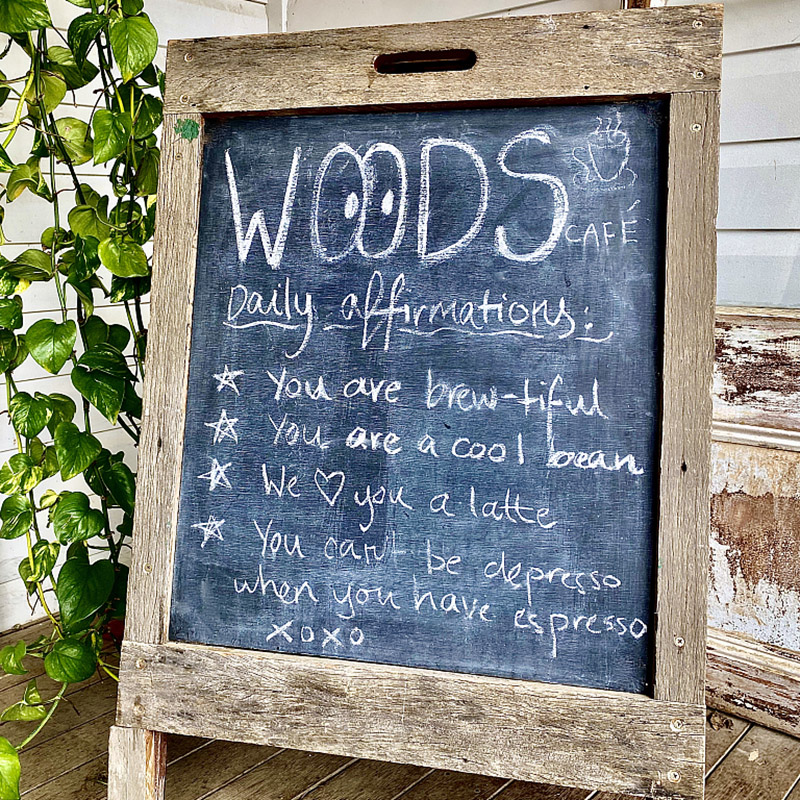 WOODS
CAFÉ
Daily affirmations:
You are brew-tiful
You are a cool bean
We ♡ you a latte
You can't be depresso
when you have espresso
xoxo